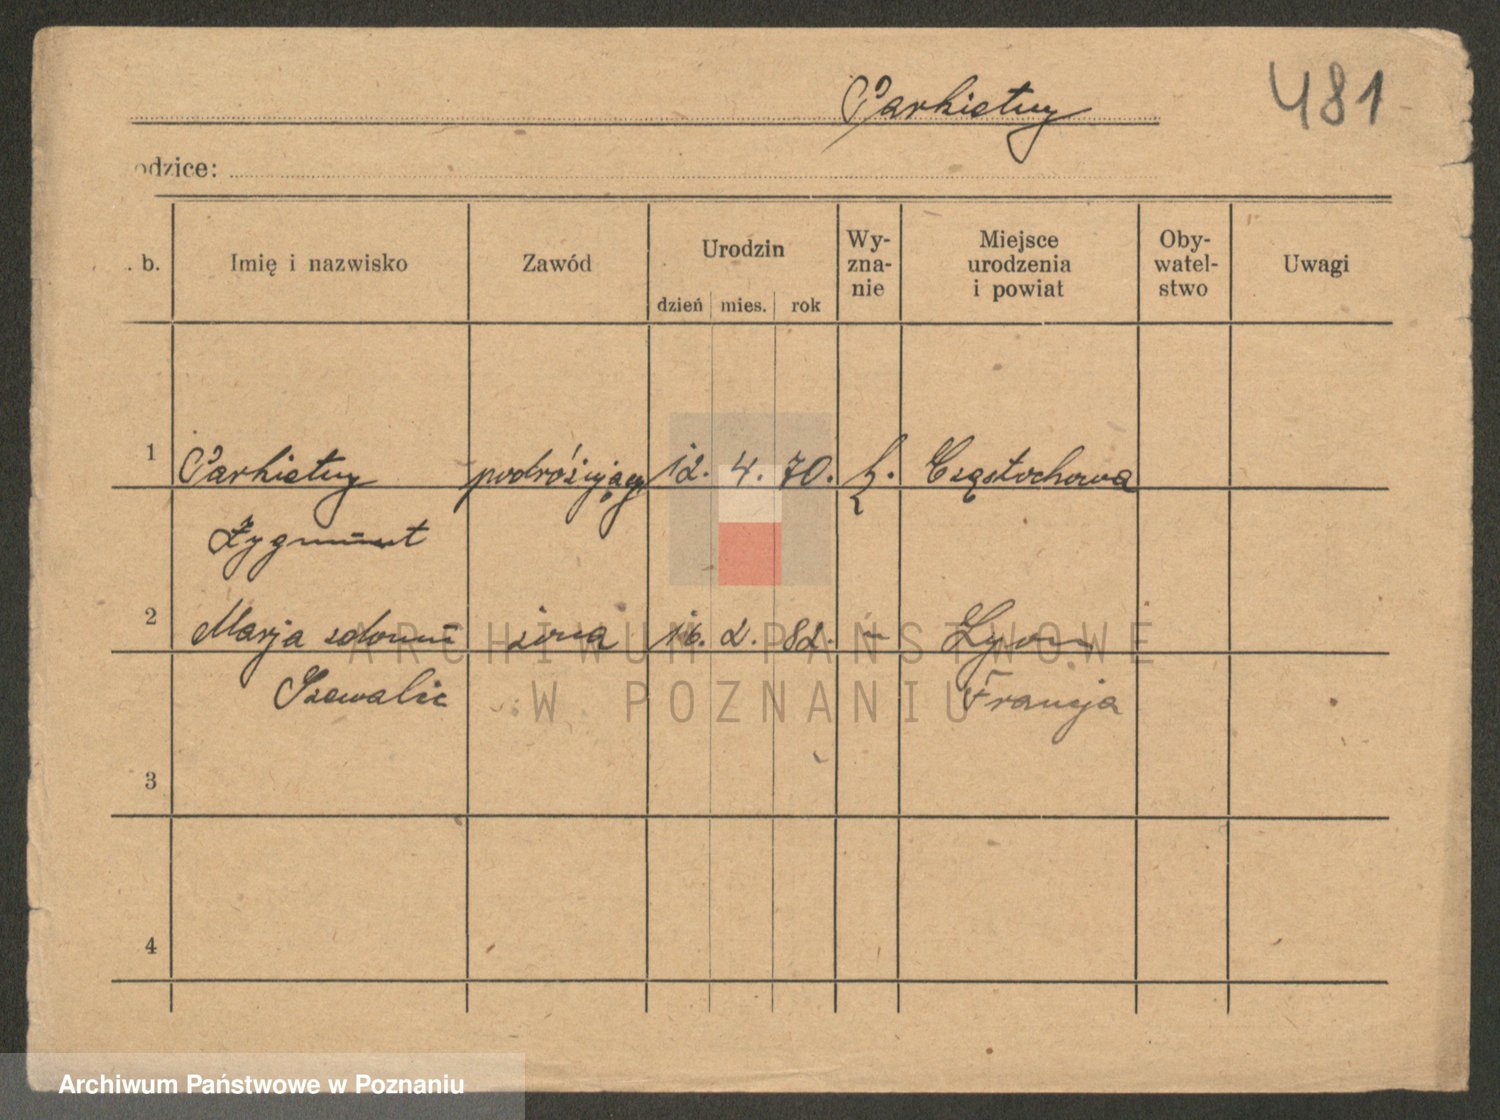 Parkietny 481
odzice:
. b. Imię i nazwisko Zawód Urodzin Wy- Miejsce Oby- Uwagi
zna- urodzenia watel-
nie i powiat stwo
dzień mies. rok
1 Parkietny podróżujący 12. 4. 70. k. Częstochowa
Zygmunt
2 Marja z domu żona 16. 2. 82. " Lyon
Francja
3
4
ARCHIWUM PAŃSTWOWE
W POZNANIU
Archiwum Państwowe w Poznaniu